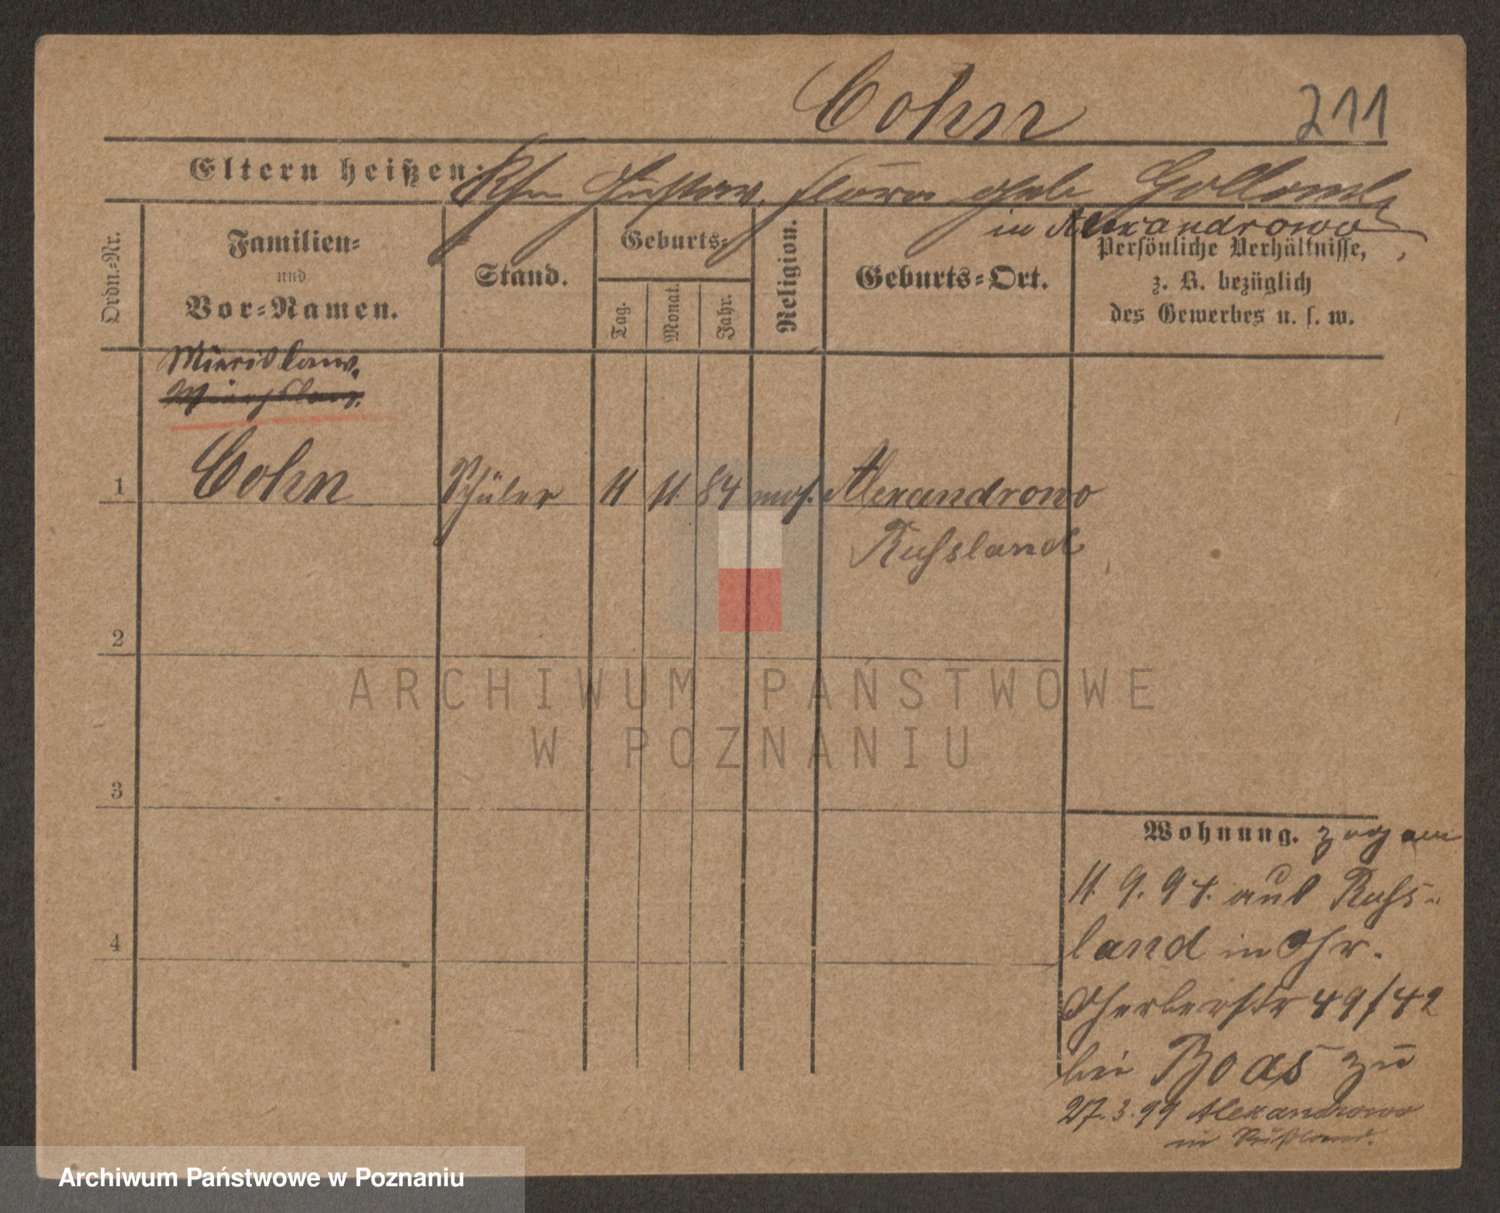 Cohn
211
Eltern heißen: Kfm Gustav, Flora geb. Gollomb
in Alexandrowo
Ordn.-Nr.
Familien-
und
Vor-Namen.
Stand.
Geburts-
Tag.
Monat.
Jahr.
Religion.
Geburts-Ort.
Persönliche Verhältnisse,
z. B. bezüglich
des Gewerbes u. s. w.
1 Cohn Schüler 11 11. 84 mos. Alexandrowo
Russland
2
ARCHIWUM PAŃSTWOWE
W POZNANIU
3
Wohnung. zog am
11. 9. 97. aus Russ-
land in Gr.
Gerberstr 49/42
bei Boas zu
27.3.99 Alexandrowo
in Rußland.
4
Archiwum Państwowe w Poznaniu